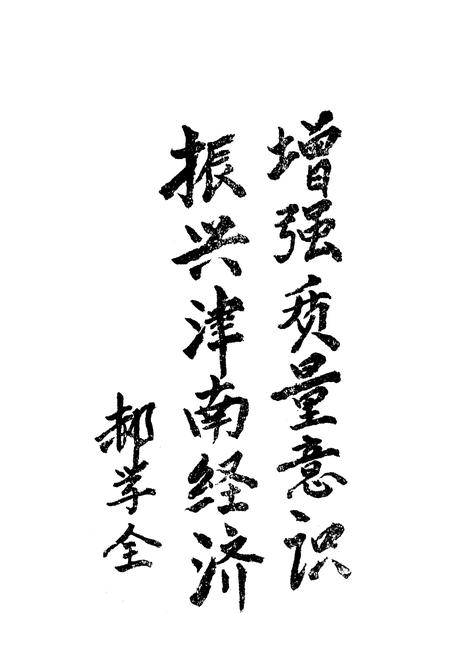 增强质量意识
振兴津南经济
郝学全